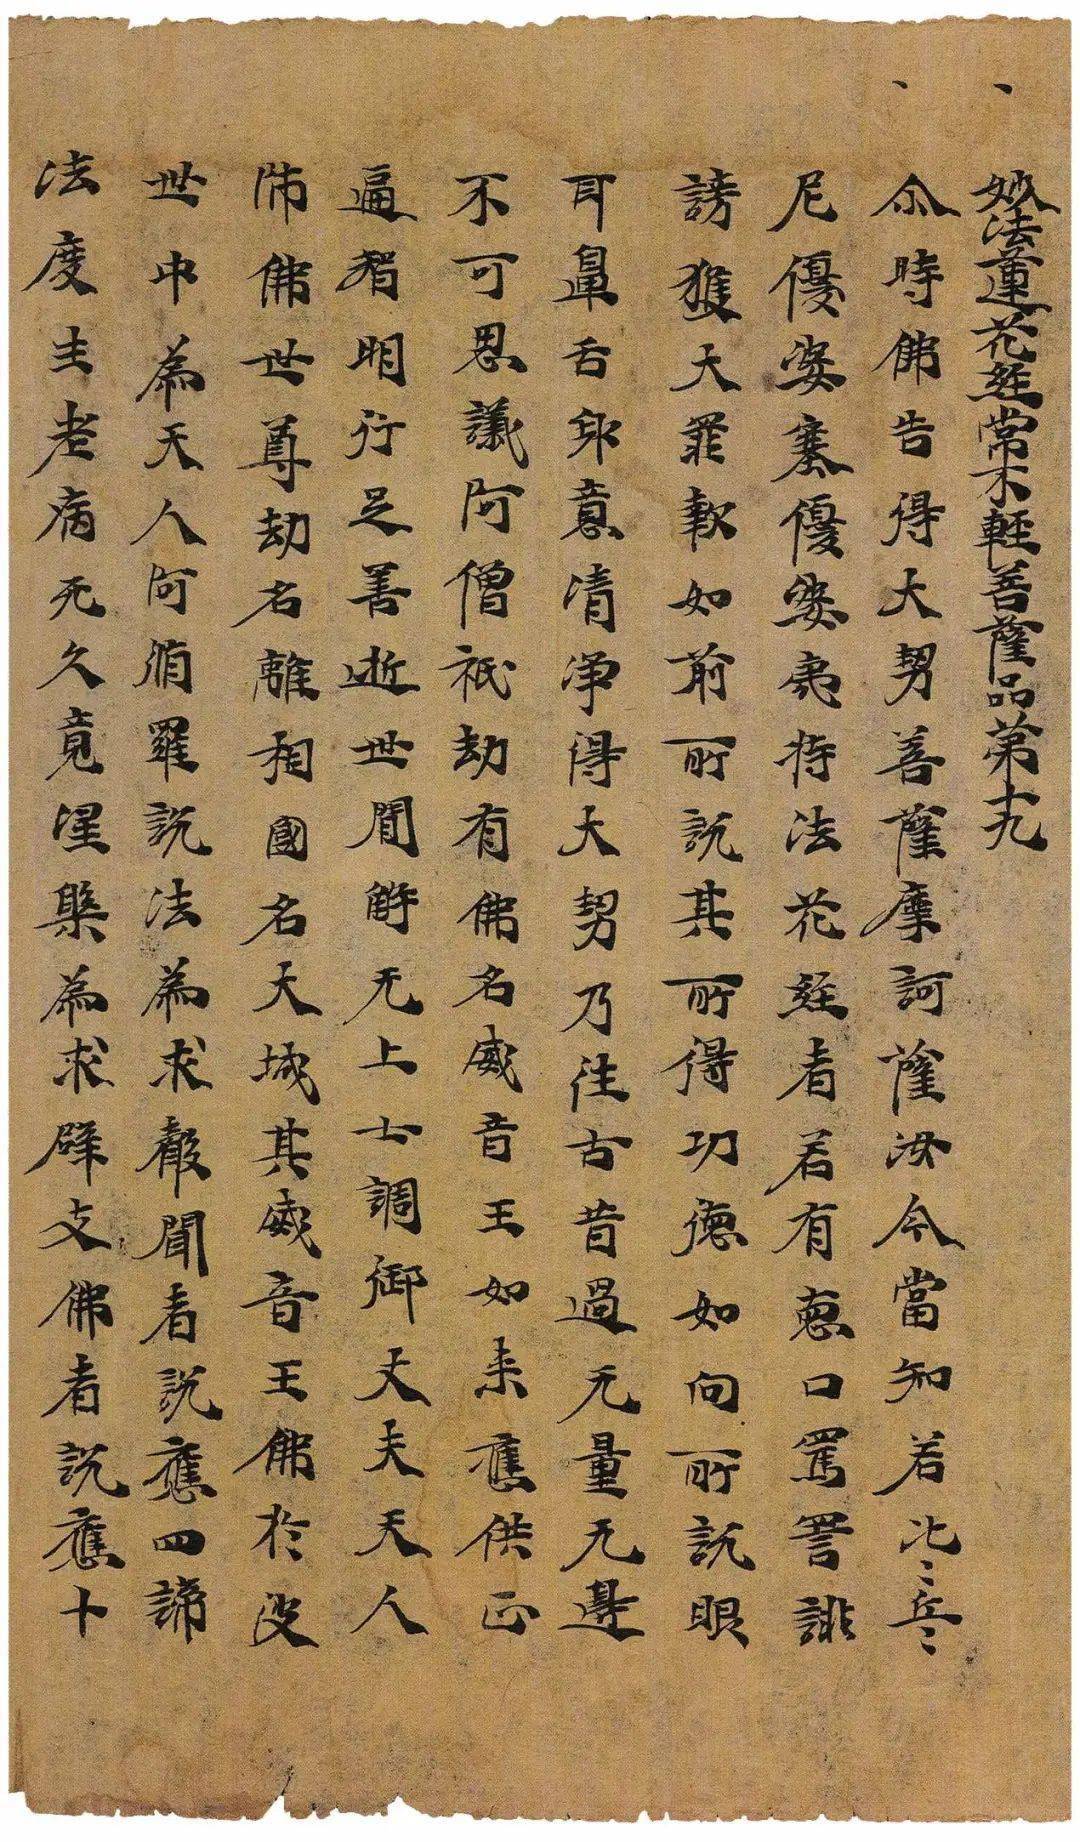 妙法蓮花經常不輕菩薩品第十九
尒時佛告得大勢菩薩摩訶薩汝今當知若比〻丘〻
尼優婆塞優婆夷持法花經者若有惡口罵詈誹
謗獲大罪報如前所說其所得功德如向所說眼
耳鼻舌身意清淨得大勢乃往古昔過无量无邊
不可思議阿僧祇劫有佛名威音王如来應供正
遍智明行足善逝世間解无上士調御丈夫天人
師佛世尊劫名離相國名大城其威音王佛於彼
世中為天人阿脩羅說法為求聲聞者說應四諦
法度生老病死久竟涅槃為求辟支佛者說應十